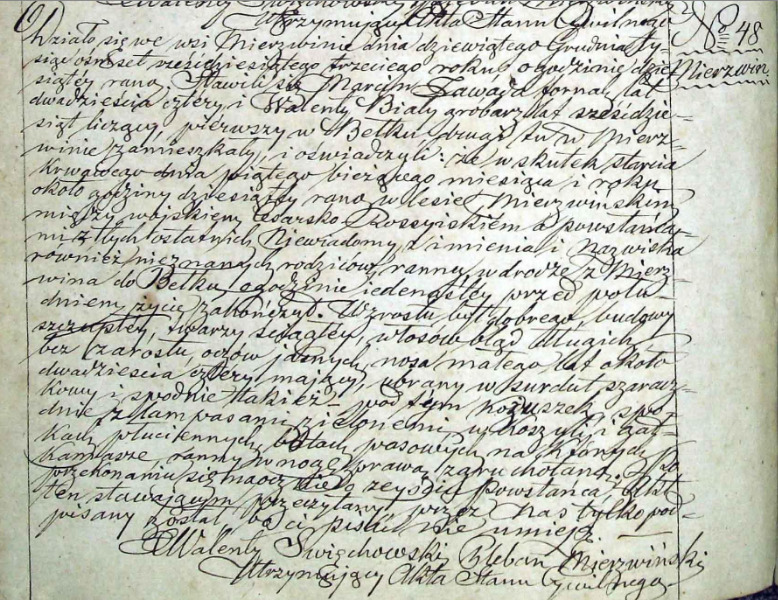 Walenty Święchowski
Utrzymujący Akta Stanu Cywilnego
No 48
Mierzwin
Działo się we wsi Mierzwinie dnia dziewiątego Grudnia ty-
siąc osmset sześćdziesiątego trzeciego roku o godzinie dzie-
siątey rano, Stawili się Marcin fornal lat
dwadzieścia cztery i Walenty Biały grobarz lat sześćdzie-
siąt liczący, pierwszy w Bełku, drugi tu w Mierz-
winie zamieszkały, i oświadczyli: że w skutek starcia
krwawego dnia piątego bieżącego miesiąca i roku
około godziny dziesiątey rano w lesie Mierzwinskim
między wojskiem Cesarsko Rossyiskiem a powstańca-
mi, z tych ostatnich Niewiadomy z imienia i nazwiska
rownież nieznanych rodziców, ranny, w drodze z Mierz-
wina do Bełku o godzinie iedenastey przed połu-
dniem, życie zakończył. Wzrostu był dobrego, budowy
szczupłey, twarzy sciągłey, włosów bląd długich,
bez zarostu, oczów jasnych, nosa małego, lat około
dwadzieścia cztery mający, ubrany w surdut szaracz-
kowy i spodnie takież, pod tym kożuszek, spo-
dnie z lampasami zielonemi, w koszuli i gat-
kach płuciennych, botach pasowych na których
kamasze, ranny w nogę prawą zgruchotaną. Po
przekonaniu się naocznie o zeyściu Powstańca, Akt
ten stawającym przeczytany, przez nas tylko pod-
pisany został, bo ci pisać nie umieją.
Walenty Święchowski Pleban Mierzwiński
Utrzymujący Akta Stanu Cywilnego